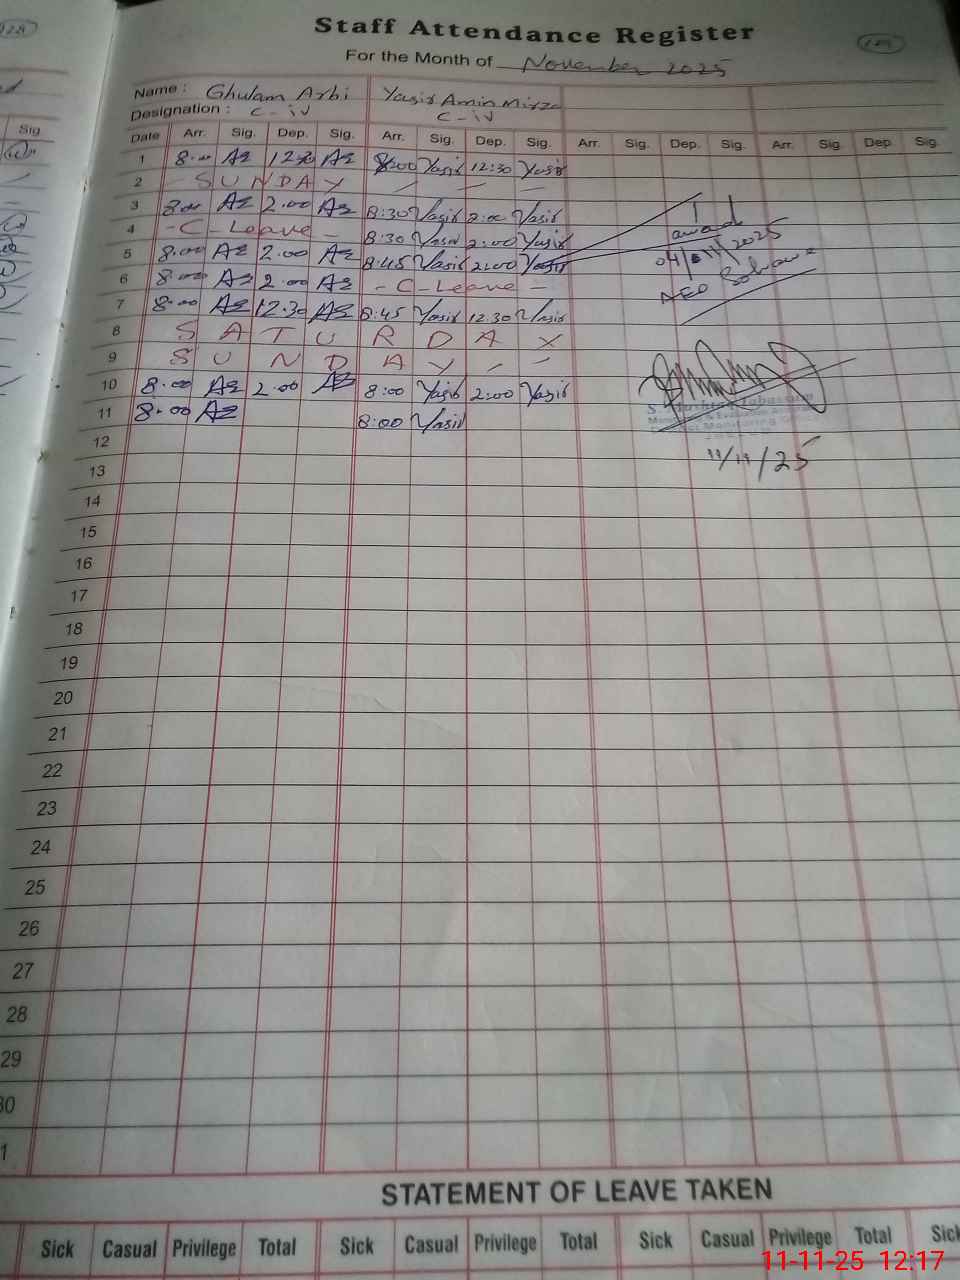 Staff Attendance Register
For the Month of November 2025
Name : Ghulam Arbi Yasir Amin Mirza
Designation : C-iv C-iv
Date Arr. Sig. Dep. Sig. Arr. Sig. Dep. Sig. Arr. Sig. Dep. Sig. Arr. Sig. Dep. Sig.
1 8.00 12.30 8:00 Yasir 12:30 Yasir
2 - SUNDAY - - -
3 8.00 2.00 8:30 Yasir 2:00 Yasir
4 - C - Leave - 8:30 Yasir 2:00 Yasir
5 8.00 2.00 8:45 Yasir 2:00 Yasir
6 8.00 2.00 - C - Leave -
7 8.00 12.30 8:45 Yasir 12:30 Yasir
8 SATURDAY
9 SUNDAY - -
10 8.00 2.00 8:00 Yasir 2:00 Yasir
11 8.00 8:00 Yasir
AEO Sohawa
11/11/25
12
13
14
15
16
17
18
19
20
21
22
23
24
25
26
27
28
29
30
STATEMENT OF LEAVE TAKEN
Sick Casual Privilege Total Sick Casual Privilege Total Sick Casual Privilege Total
11-11-25 12:17